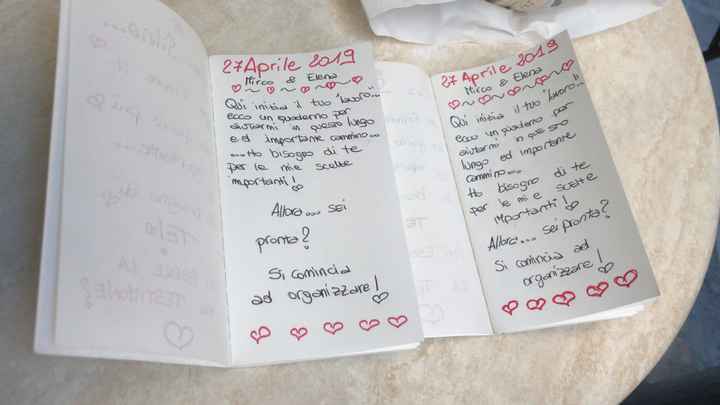 27 Aprile 2019
Mirco & Elena
Qui inizia il tuo "lavoro..."
ecco un quaderno per
aiutarmi in questo lungo
ed importante cammino...
....Ho bisogno di te
per le mie scelte
importanti!
Allora.... sei
pronta?
Si comincia
ad organizzare!
27 Aprile 2019
Mirco & Elena
Qui inizia il tuo "lavoro..."
ecco un quaderno per
aiutarmi in questo
lungo ed importante
cammino....
Ho bisogno di te
per le mie scelte
mportanti!
Allora.... sei pronta?
Si comincia ad
organizzare!